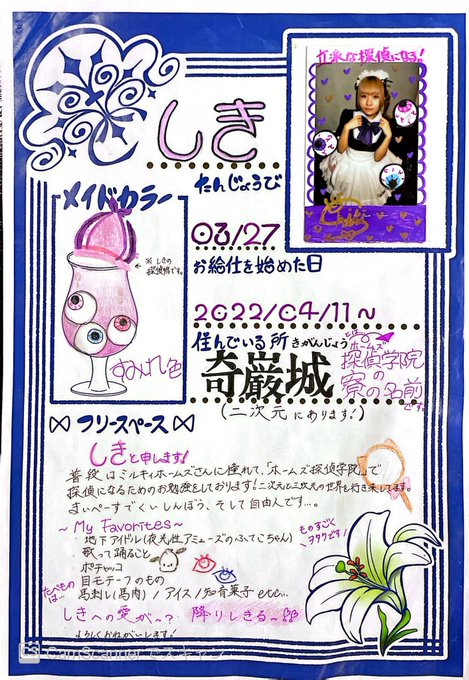 立派な探偵になる!
しき
たんじょうび
03/27
メイドカラー
※しきの
探偵帽です。
すみれ色
お給仕を始めた日
2022/04/11~
住んでいる所
きがんじょう
奇巌城
ホームズ
探偵学院
の
寮の名前
です。
(二次元にあります!)
フリースペース
しきと申します!
普段はミルキィホームズさんに憧れて、「ホームズ探偵学院」で
探偵になるためのお勉強をしております!二次元と三次元の世界を行き来してます。
まいぺーすでくいしんぼう、そして自由人です…。
~My Favorites~
・地下アイドル(夜光性アミューズのふてこちゃん)
・歌って踊ること
・ポチャッコ
・目モチーフのもの
たべもの
は…
・馬刺し(馬肉)/アイス/知育菓子 etc…
ものすごく
ヲタクです!
しきへの愛が~?降りしきる~!!
よろしくおねがいします!
CS CamScannerでスキャン